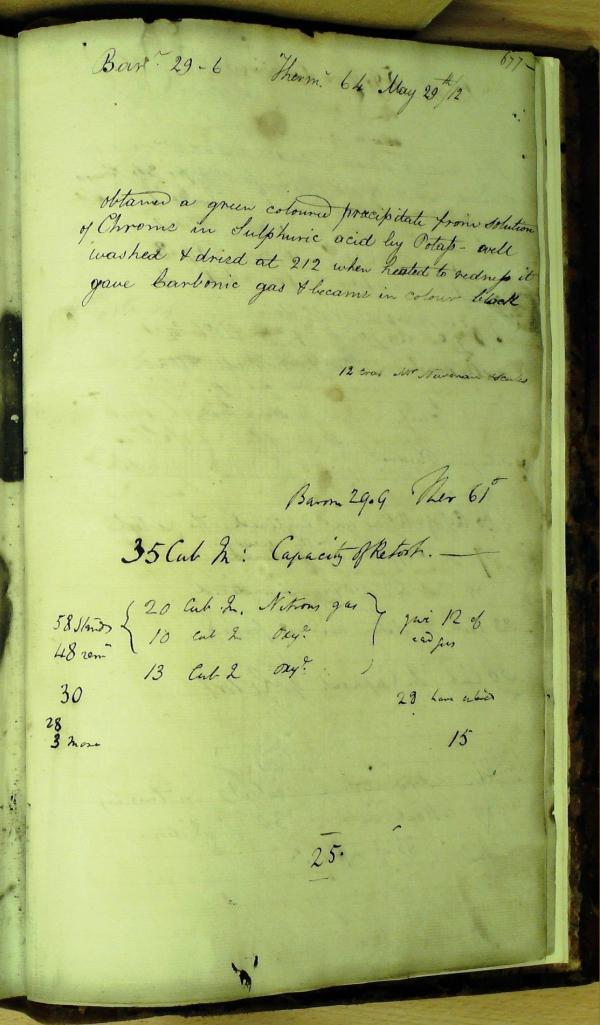 677
Barr. 29-6 Therm. 64 May 29th/12
obtained a green coloured precipitate from solution
of Chrome in Sulphuric acid by Potash - well
washed & dried at 212 when heated to redness it
gave Carbonic gas & became in colour black
12 Mr. Newman scales
Barom 29.9 Ther 61°
35 Cub In: Capacity of Retort. —
20 Cub. In. Nitrous gas
58 10 cub In Oxy. 12 of
48 rem gas
13 Cub In Oxy.
30 29 have
28
3 more 15
25.